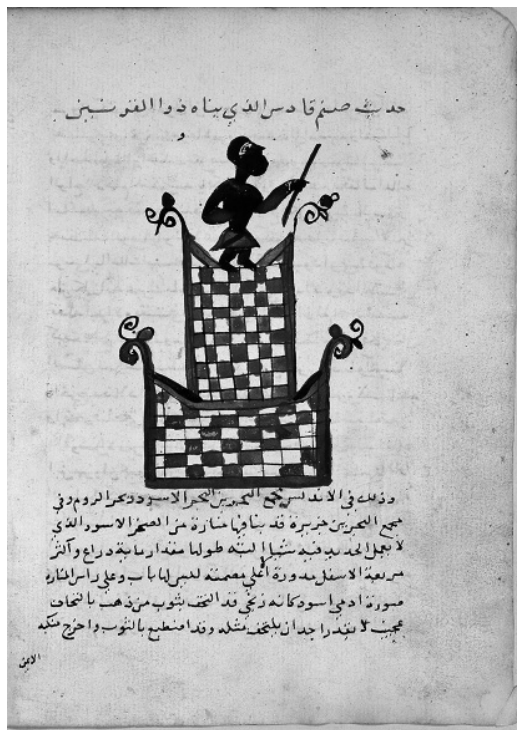 حديث صنم قادس الذي بناه ذوا القرنين
و
وذلك في الاندلس مجمع البحرين البحر الاسود وبحر الروم وفي
مجمع البحرين جزيرة قد بنا فيها منارة من الصخر الاسود الذي
لا يعمل الحديد فيه شيا البته طولها مقدار ماية دراع واكثر
مربعة الاسفل مدورة اعلي مصمته ليس لها باب وعلي راس المناره
صورة ادمي اسود كانه زنجي قد التحف بثوب من ذهب بالتحاف
عجيب لا يقدر احد ان يلتحف مثله وقد اضطبع بالثوب واخرج منكبه
الايمن